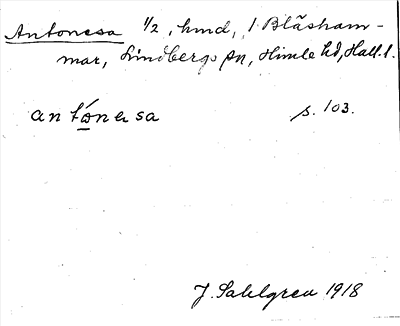 Antonesa 1/2, hmd, 1 Blåsham-
mar, Lindbergs sn, Himle hd, Hall. l.
antónesa s. 103.
J. Sahlgren 1918